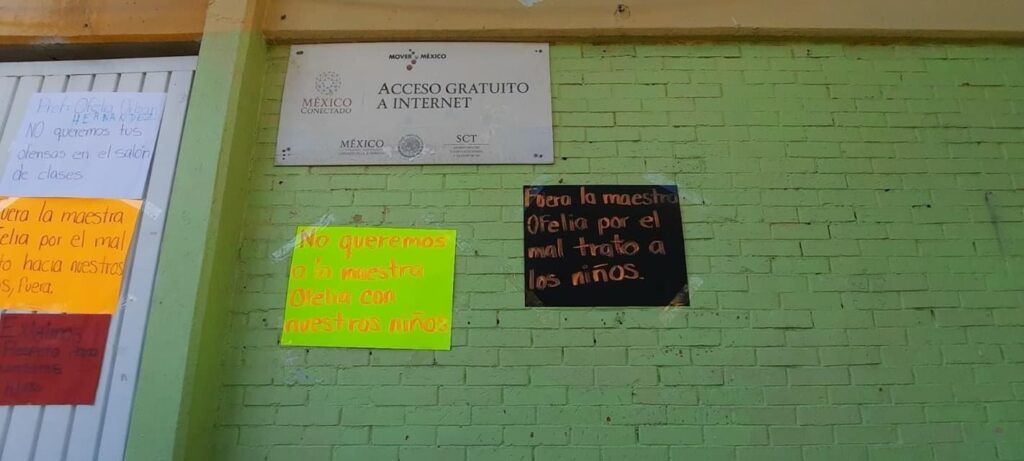 MOVER A MÉXICO
MÉXICO
CONECTADO
ACCESO GRATUITO
A INTERNET
MÉXICO
SCT
Profra Ofelia
HERNANDEZ
NO queremos tus
ofensas en el salón
de clases
uera la maestra
felia por el mal
to hacia nuestros
s, fuera.
Exigimos
Respeto
niños
No queremos
a la maestra
Ofelia con
nuestros niños
Fuera la maestra
Ofelia por el
mal trato a
los niños.